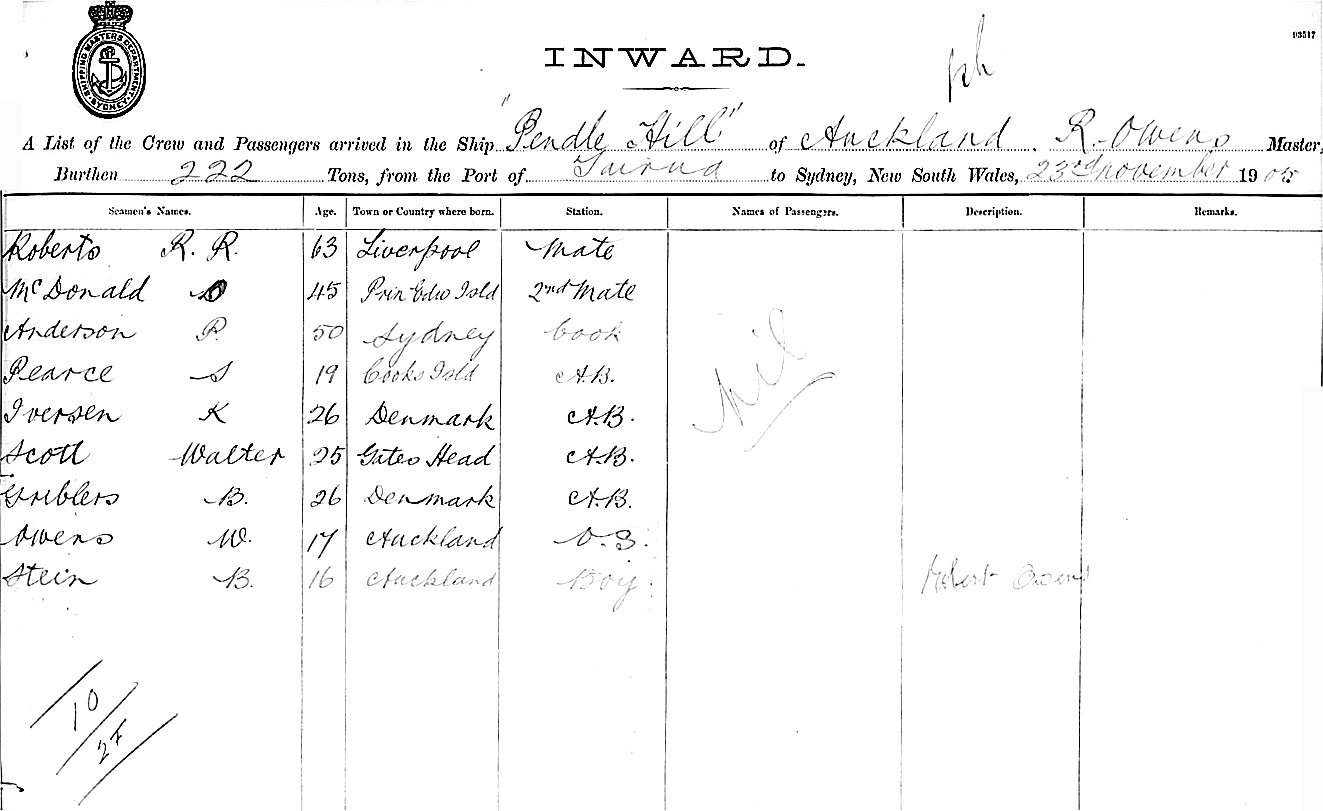 SHIPPING MASTERS DEPARTMENT
SYDNEY
INWARD.
A List of the Crew and Passengers arrived in the Ship "Pendle Hill" of Auckland. R. Owens Master,
Burthen 222 Tons, from the Port of Tairua to Sydney, New South Wales, 23rd November 1905
Seamen's Names. Age. Town or Country where born. Station. Names of Passengers. Description. Remarks.
Roberts R. R. 63 Liverpool Mate
McDonald D 45 Prin Edw Isld 2nd Mate
Anderson P. 50 Sydney Cook
Pearce S 19 Cooks Isld A.B.
Nil
Iversen K 26 Denmark A.B.
Scott Walter 25 Gates Head A.B.
B. 26 Denmark A.B.
Owens W. 17 Auckland O.S.
Stein B. 16 Auckland Boy.
Robert Owens
10